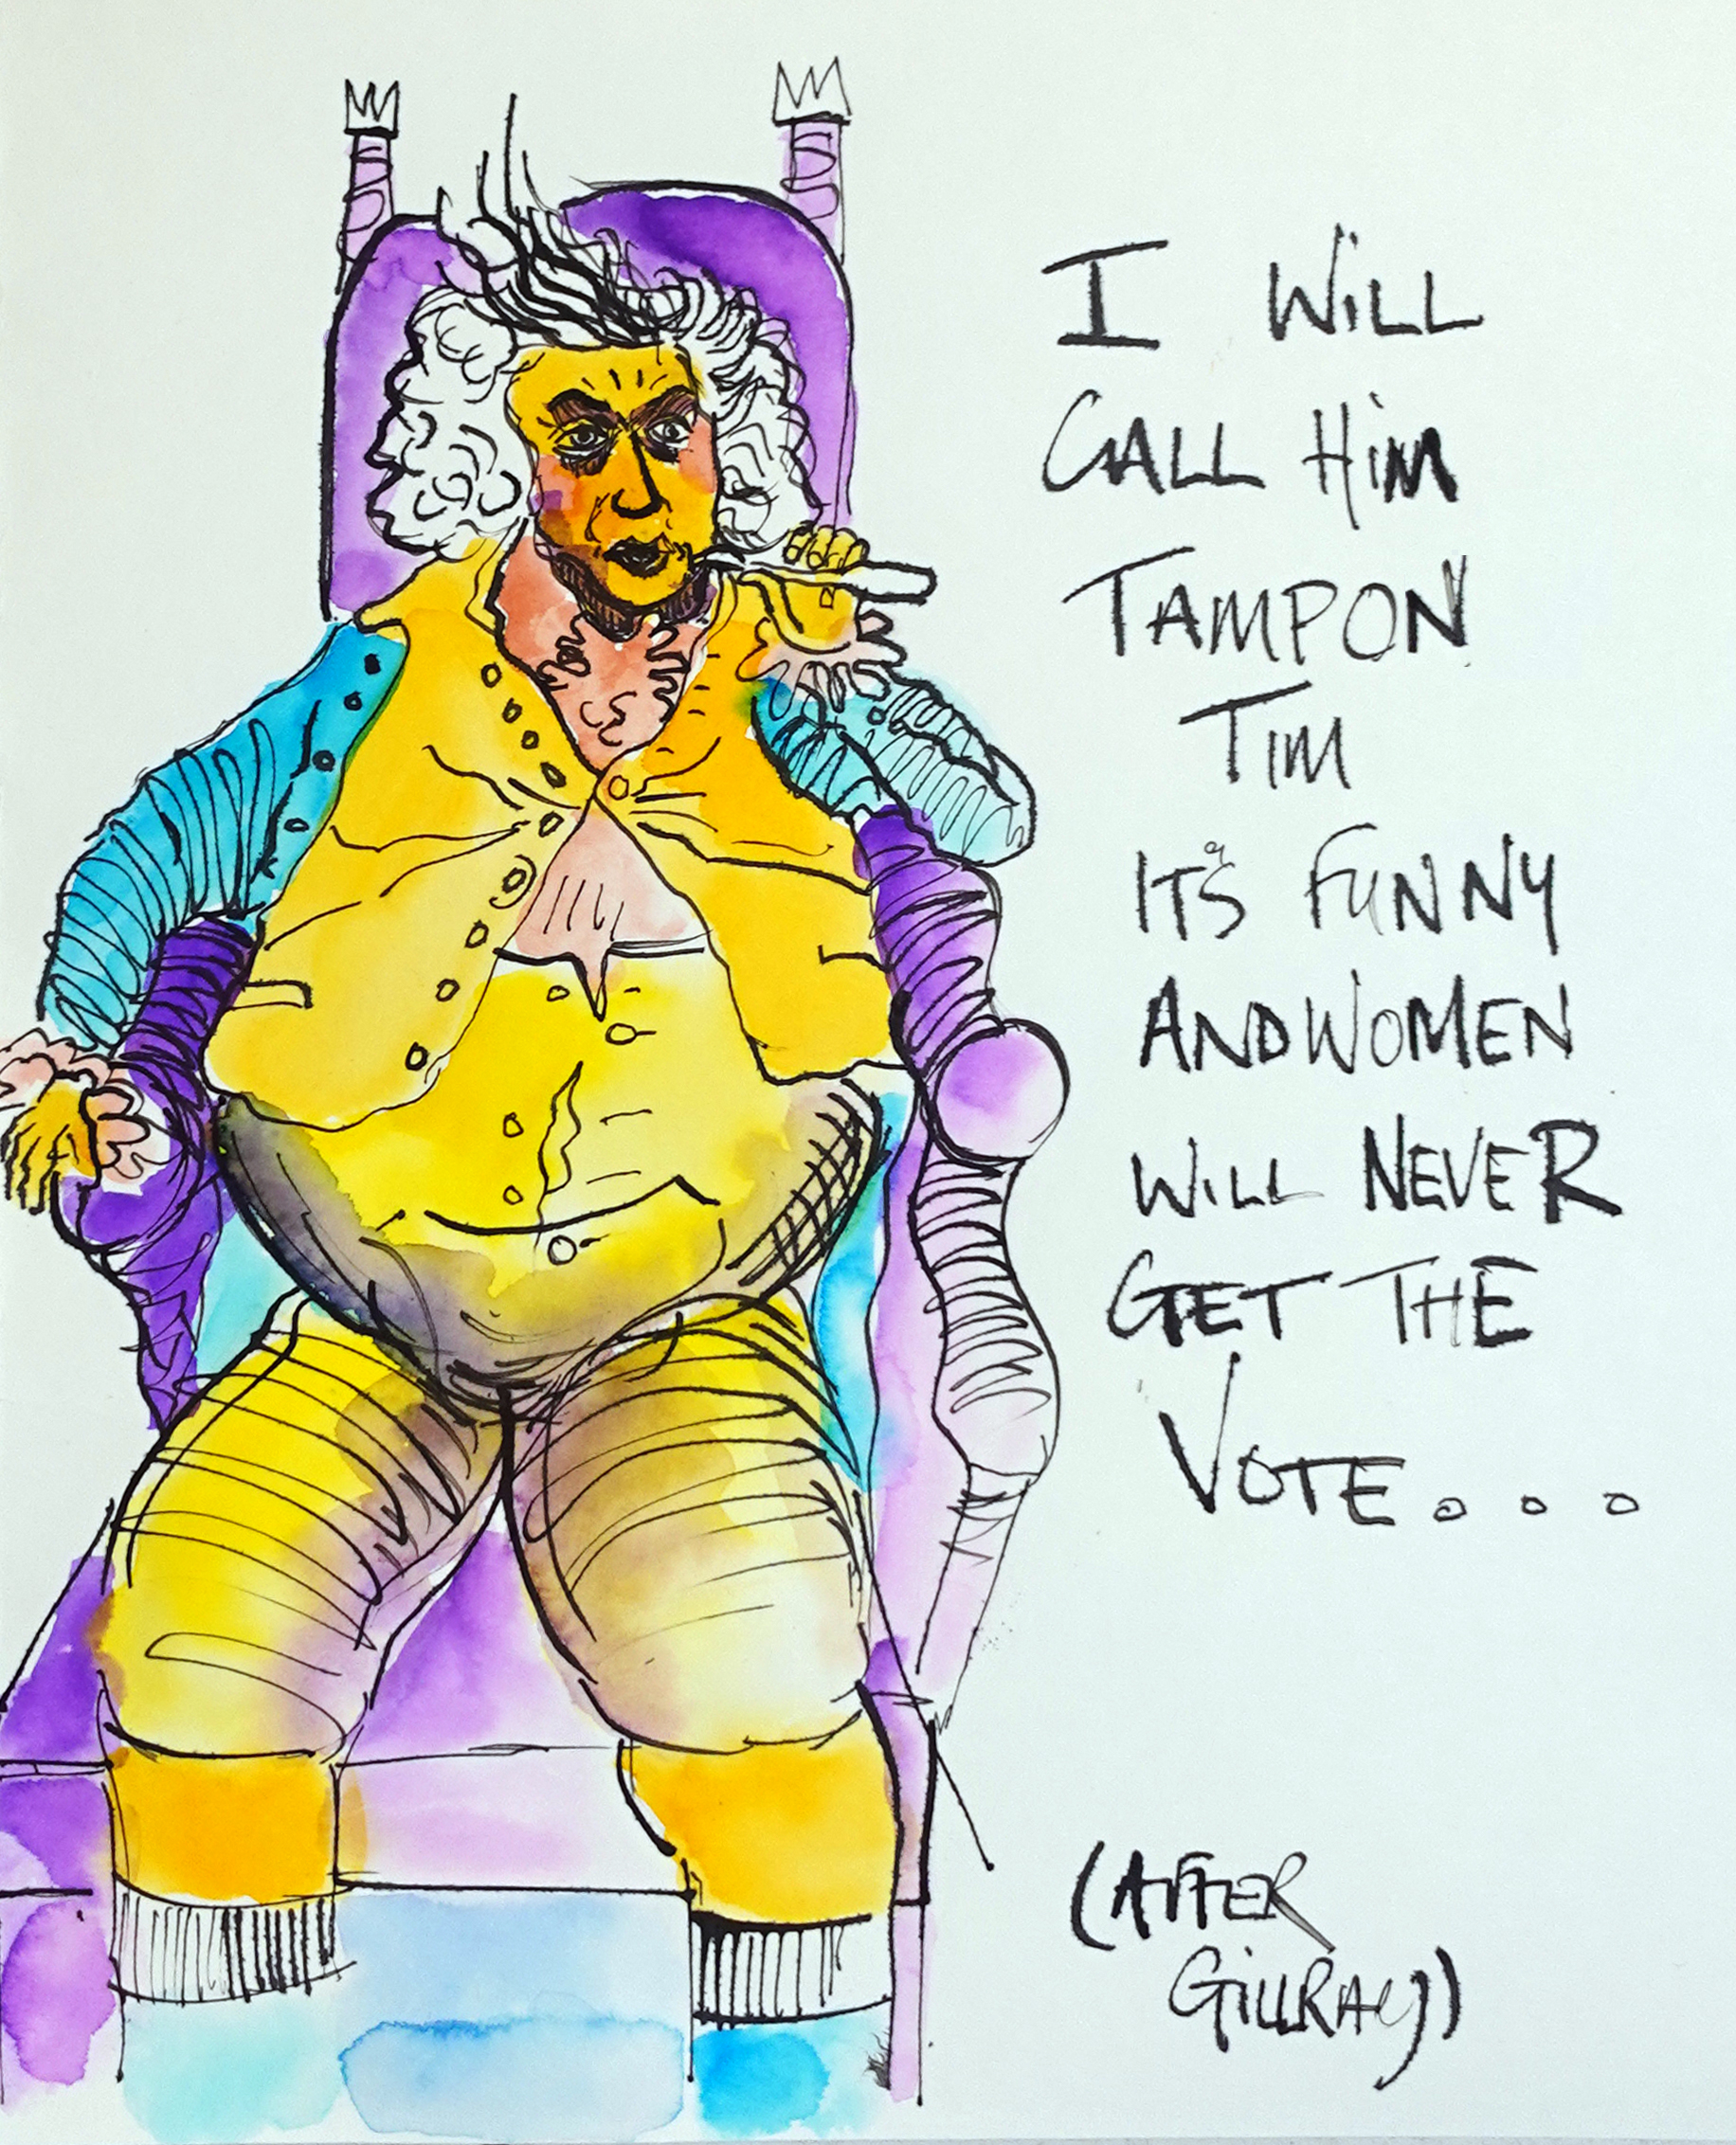 I WILL
CALL HIM
TAMPON
TIM
IT'S FUNNY
AND WOMEN
WILL NEVER
GET THE
VOTE...
(AFTER
GILLRAY)